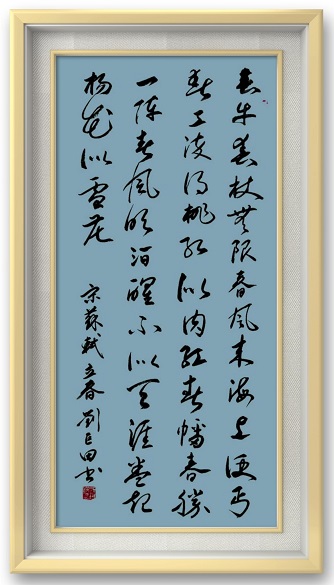 春牛春杖無限春風来海上便丐
春工染得桃红似肉红春幡春勝
一陣春風吹酒醒不似天涯卷起
杨花似雪花
宋蘇軾立春 劉田书